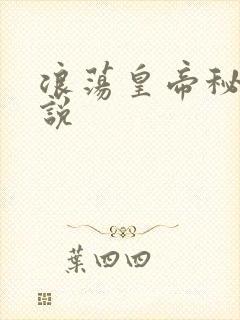 浪蕩皇帝秘
說
葉四四